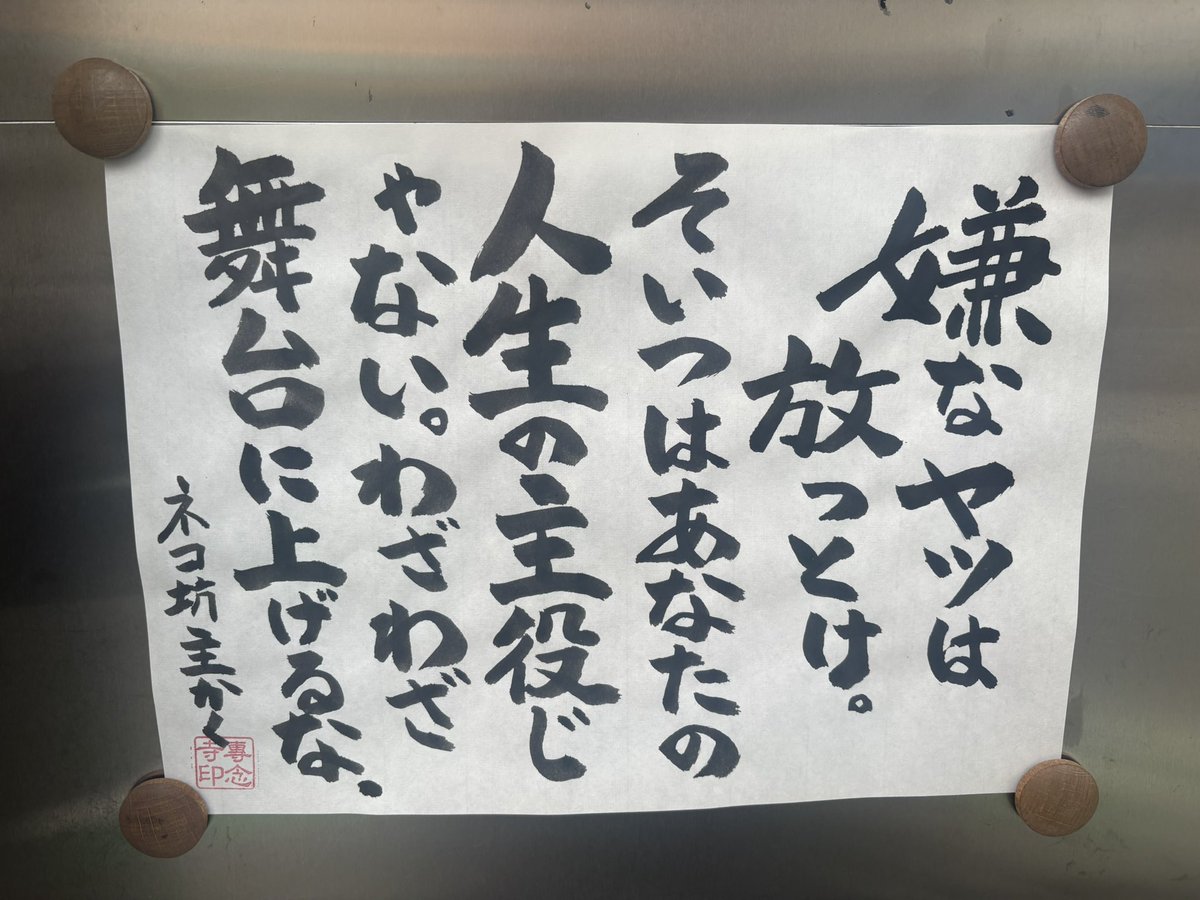 嫌なヤツは
放っとけ。
そいつはあなたの
人生の主役じ
ゃない。わざわざ
舞台に上げるな。
ネコ坊主かく
專念
寺印